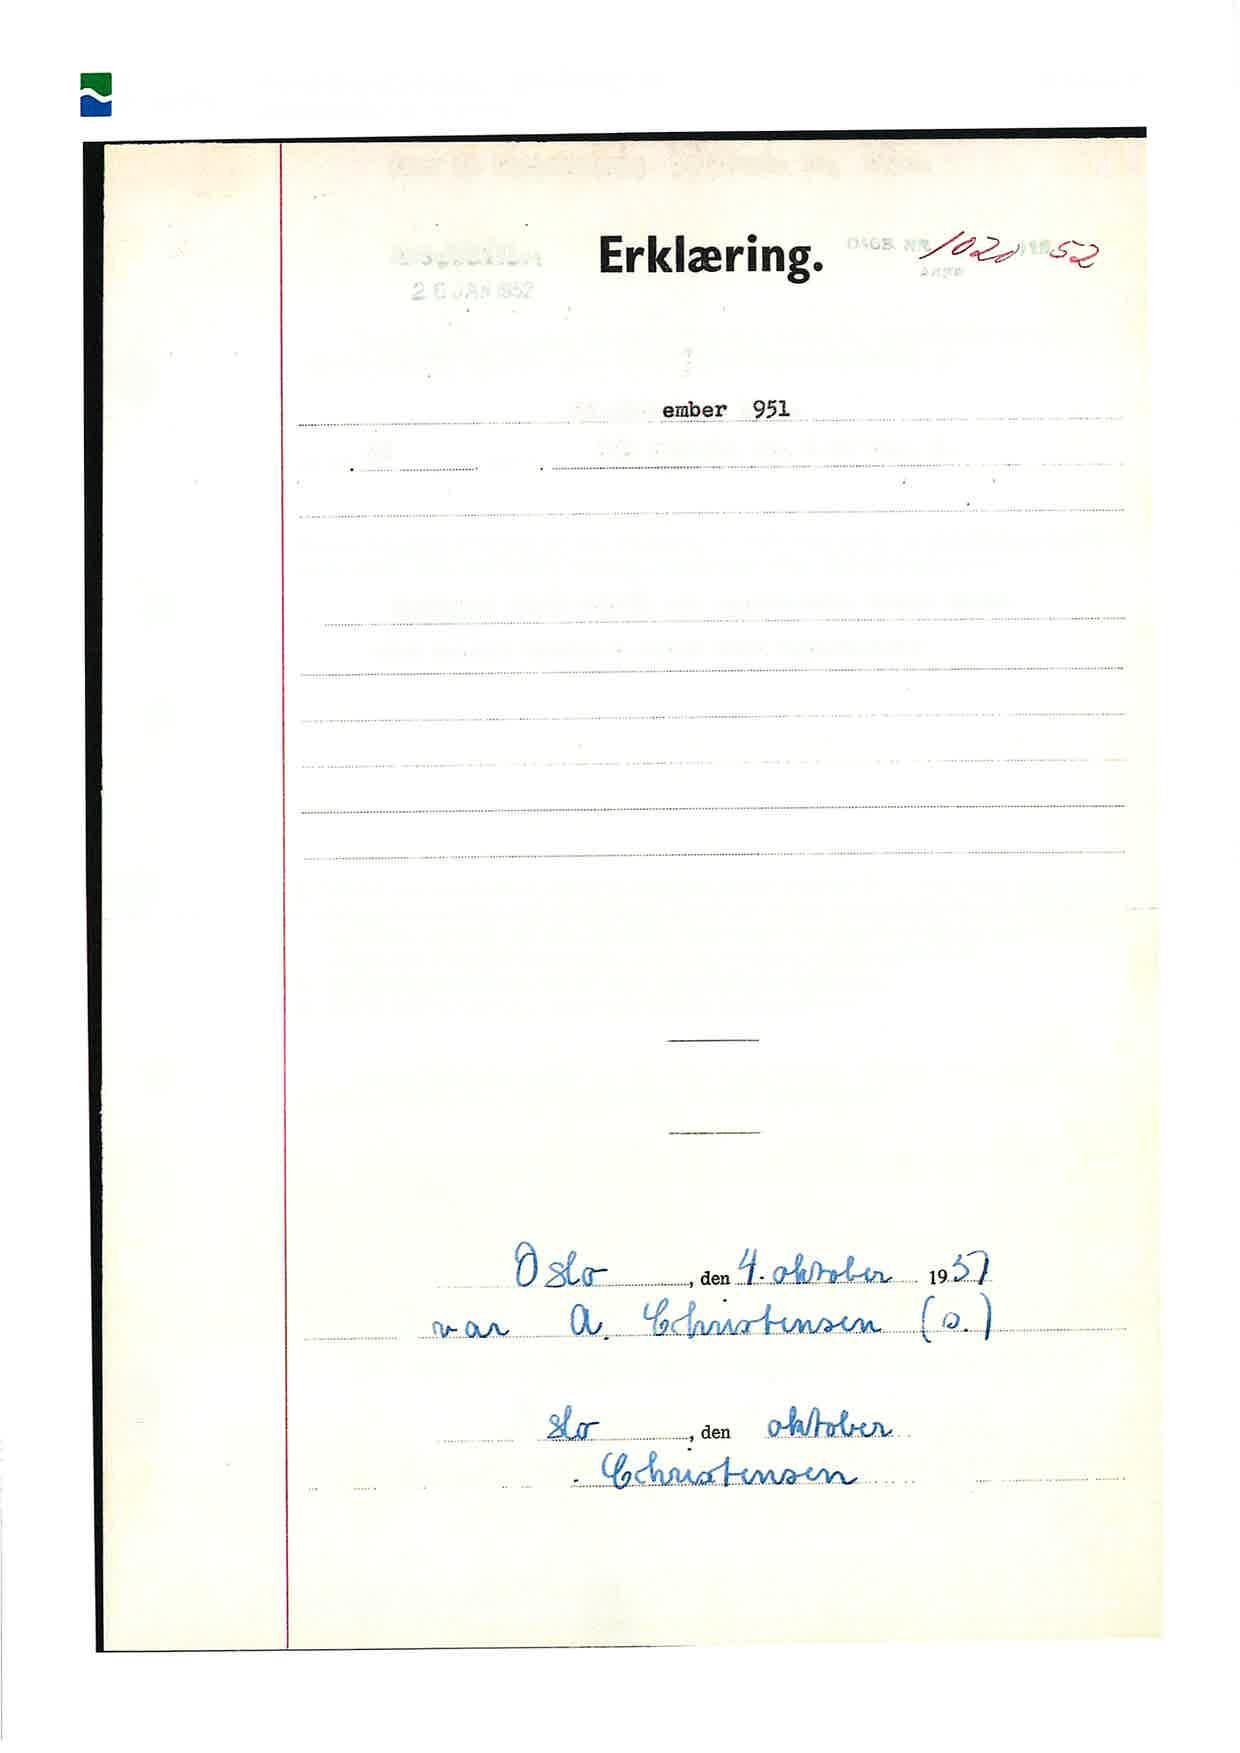 Erklæring.
DAGB. NR. 1020 1952
26 JAN 1952
ember 951
Oslo, den 4. oktober 1951
var A. Christensen (s.)
slo, den oktober
Christensen